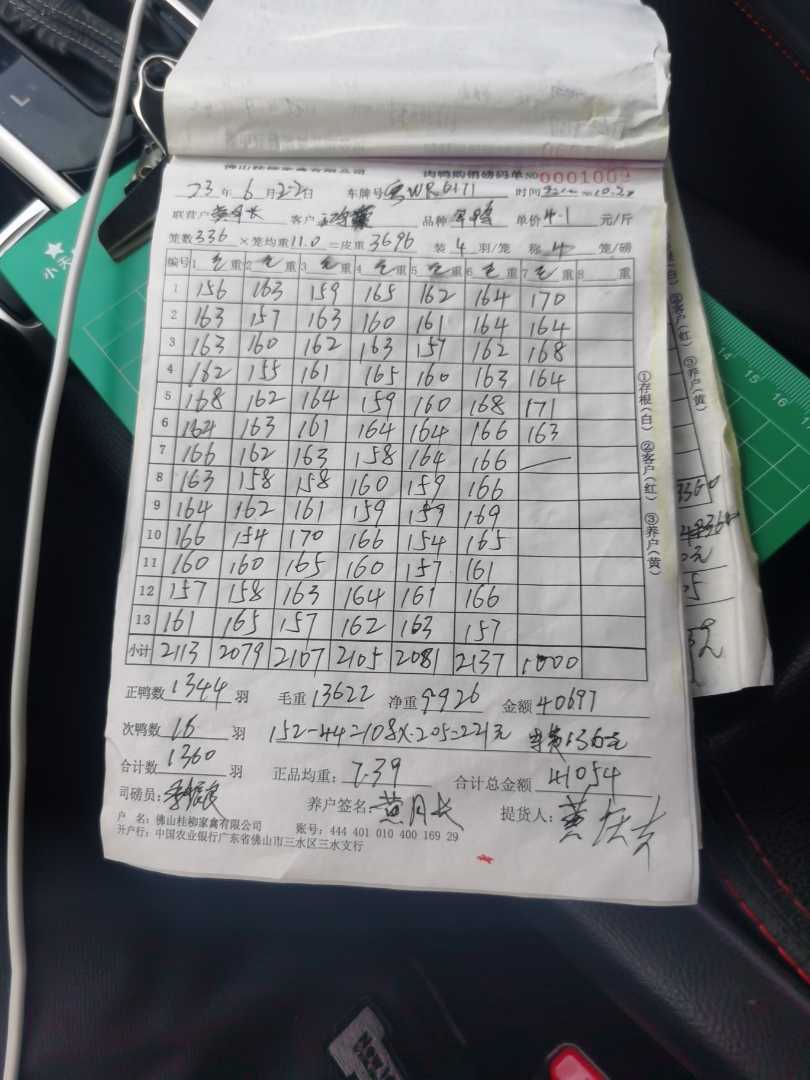 肉鸭购销磅码单 No 0001002
23 年 6 月 22 日 车牌号 粤WR6171 时间
联营户 客户 品种 单价 4.1 元/斤
笼数 336 × 笼均重 11.0 = 皮重 3696 装 4 羽/笼 称 4 笼/磅
编号 1 毛 重 2 毛 重 3 毛 重 4 毛 重 5 毛 重 6 毛 重 7 毛 重 8 重
1 156 163 159 165 162 164 170
2 163 157 163 160 161 164 164
3 163 160 162 163 157 162 168
4 162 155 161 165 160 163 164
5 168 162 164 159 160 168 171
6 164 163 161 164 164 166 163
7 166 162 163 158 164 166 —
8 163 158 158 160 159 166
9 164 162 161 159 159 169
10 166 154 170 166 154 165
11 160 160 165 160 157 161
12 157 158 163 164 161 166
13 161 165 157 162 163 157
小计 2113 2079 2107 2105 2081 2137 1000
正鸭数 1344 羽 毛重 13622 净重 9926 金额 40697
次鸭数 16 羽 152-44=108×2.05=221元 136元
合计数 1360 羽 正品均重: 7.39 合计总金额 41054
司磅员: 养户签名: 黄月长 提货人:
户 名: 佛山桂柳家禽有限公司 账号: 444 401 010 400 169 29
开户行: 中国农业银行广东省佛山市三水区三水支行
①存根(白) ②客户(红) ③养户(黄)
小天
14 15 16 17